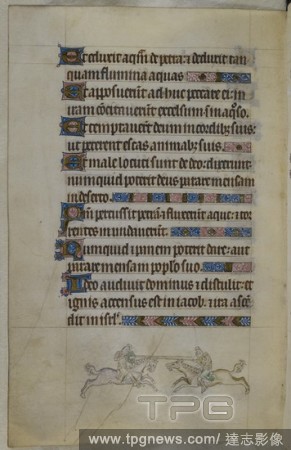 Et eduxit aqm de petra: et deduxit tan
quam flumina aquas
Et apposuerunt adhuc peccare ei: in
iram concitaverunt excelsum in inaqoso.
Et temptaverunt deum in cordib; suis:
ut peterent escas animab; suis.
Et male locuti sunt de deo: dixerunt
numquid poterit deus parare mensam
in deserto.
Qm percussit petram fluxerunt aque: et tor
rentes inundaverunt.
Numquid panem poterit dare: aut
parare mensam poplo suo.
Ideo audivit dominus et distulit: et
ignis accensus est in iacob: et ira ascen
dit in isrl.
TPG
www.tpgnews.com / 達志影像